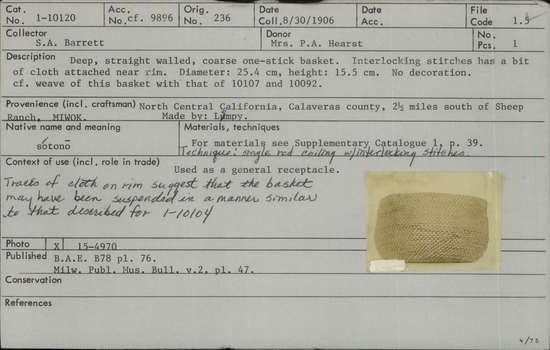 Cat. No. 1-10120 Acc. No. cf. 9896 Orig. No. 236 Date Coll. 8/30/1906 Date Acc. File Code 1.5
Collector S.A. Barrett Donor Mrs. P.A. Hearst No. Pcs. 1
Description Deep, straight walled, coarse one-stick basket. Interlocking stitches has a bit
of cloth attached near rim. Diameter: 25.4 cm, height: 15.5 cm. No decoration.
cf. weave of this basket with that of 10107 and 10092.
Provenience (incl. craftsman) North Central California, Calaveras county, 2½ miles south of Sheep
Ranch, MIWOK. Made by:
Native name and meaning
sótono
Materials, techniques
For materials see Supplementary Catalogue 1, p. 39.
Technique: single rod coiling w/interlocking stitches.
Context of use (incl. role in trade) Used as a general receptacle.
Traces of cloth on rim suggest that the basket
may have been suspended in a manner similar
to that described for 1-10104
Photo X 15-4970
Published B.A.E. B78 pl. 76.
Milw. Publ. Mus. Bull. v.2, pl. 47.
Conservation
References
4/72